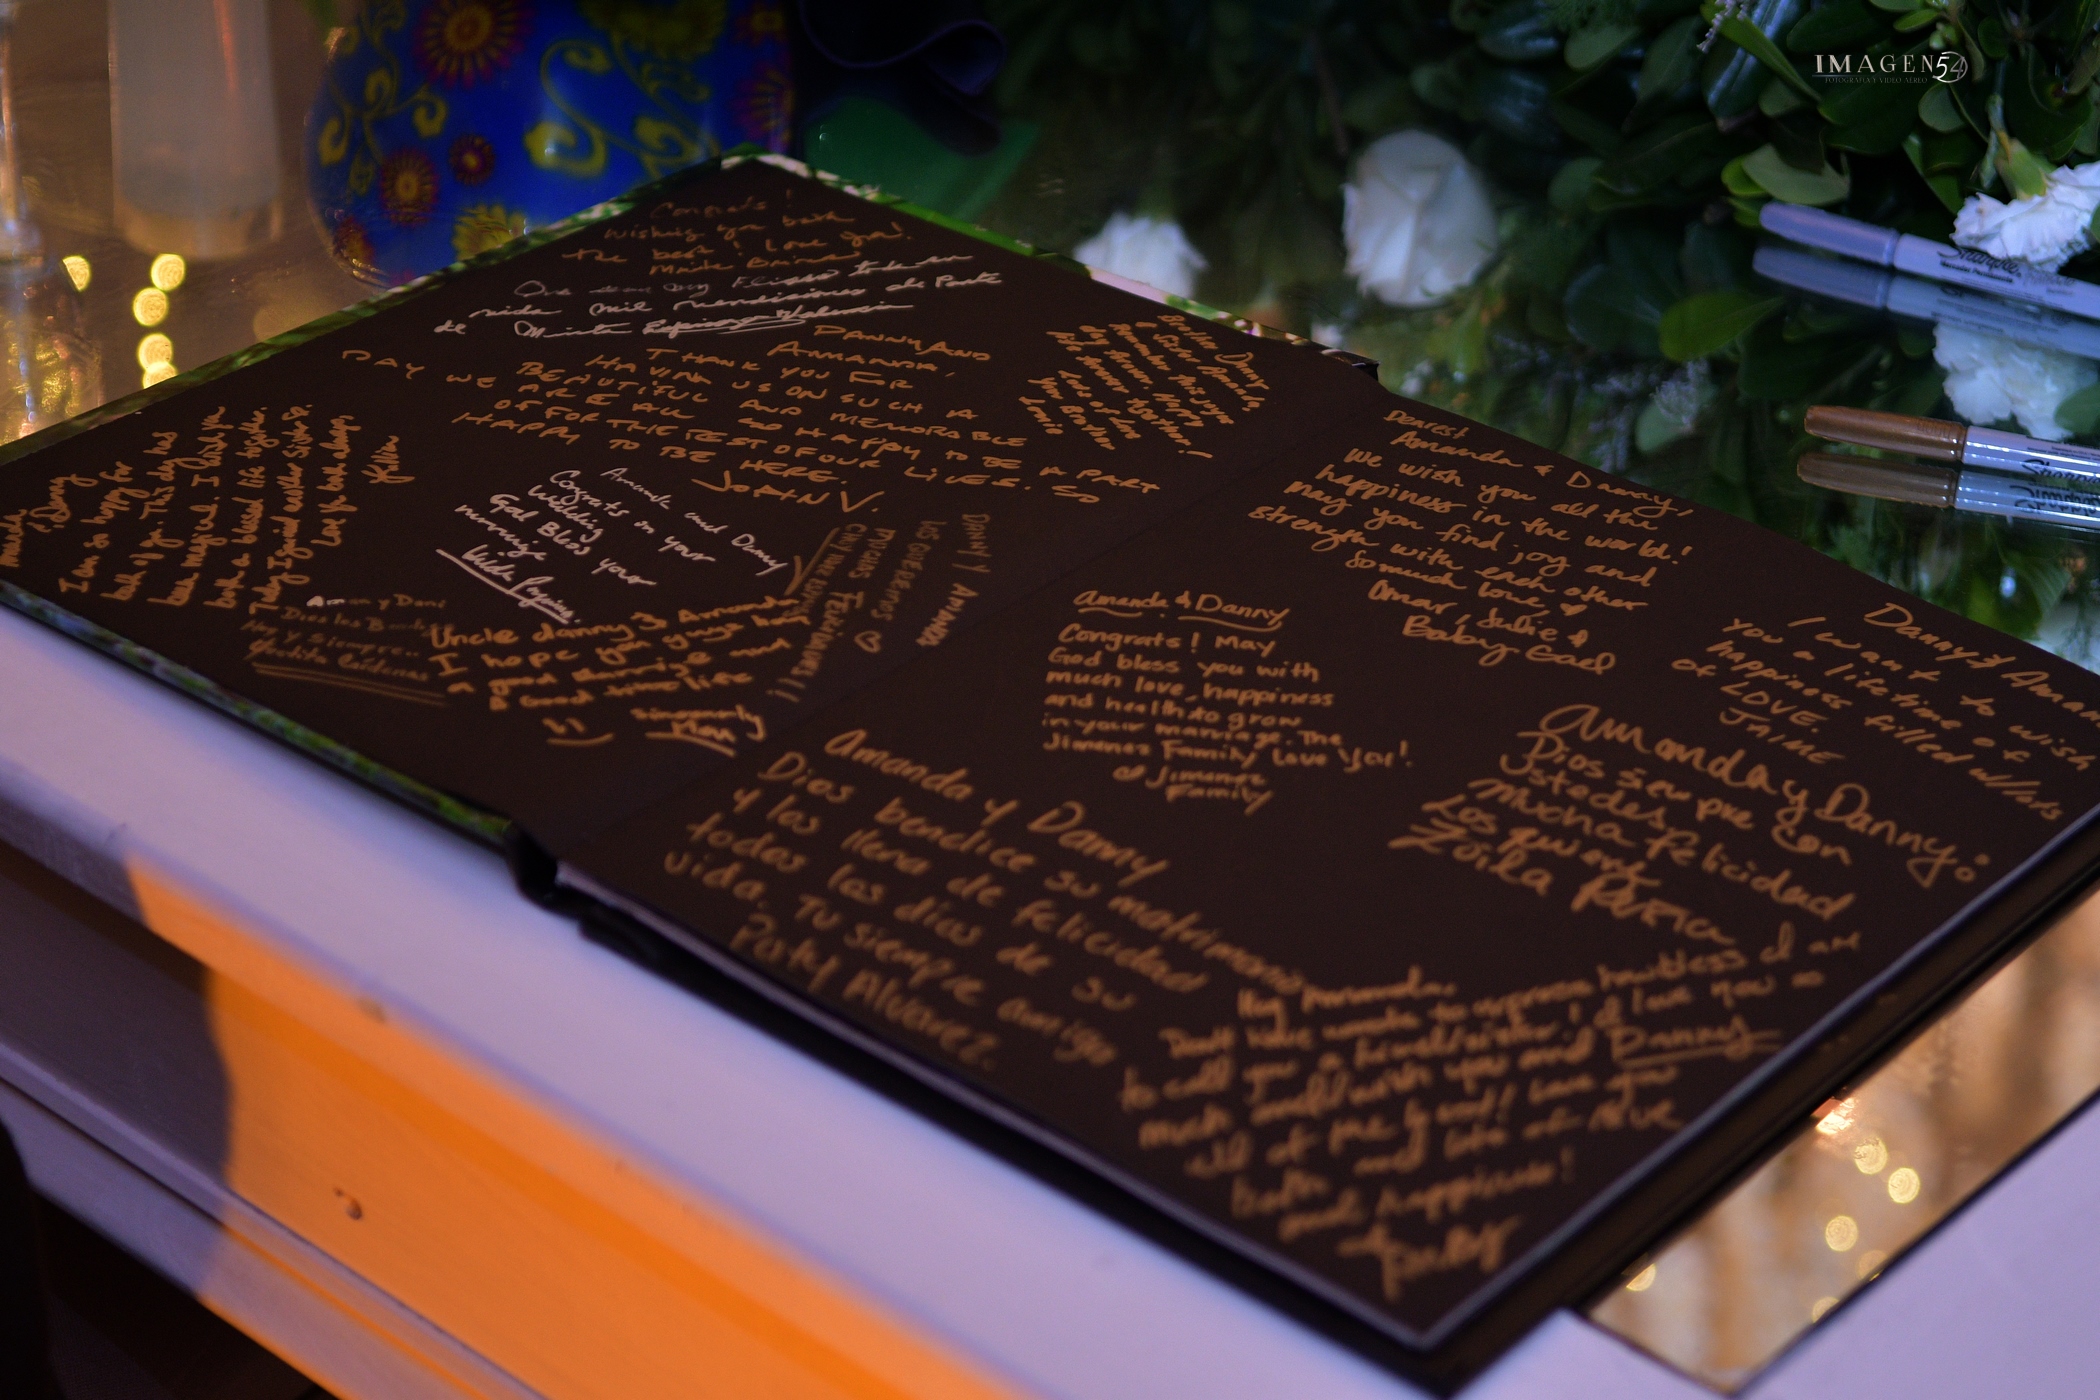 IMAGEN54
FOTOGRAFIA Y VIDEO AEREO
Sharpie
Sharpie
Congrats!
Wishing you both
the best! Love you!
DANNY AND
AMANDA,
THANK YOU FOR
HAVING US ON SUCH A
BEAUTIFUL AND MEMORABLE
DAY WE ARE ALL SO HAPPY TO BE A PART
OF FOR THE REST OF OUR LIVES. SO
HAPPY TO BE HERE.
JOHN V.
& Danny
I am so happy for
both of you. This day has
been magical. I wish you
both a blessed life together.
Today I gained another sister
Love you both always
Amanda and Danny
Congrats on your
Wedding
God Bless your
marriage
DANNY Y AMANDA
LOS QUEREMOS
MUCHAS FELICIDADES!!
Uncle danny & Amanda
I hope you guys have
a good marriage and
a Good time
Sincerely
Dios los
Hoy y siempre..
Dearest
Amanda & Danny,
We wish you all the
happiness in the world!
May you find joy and
strength with each other
So much love,
Omar, Julie &
Baby Gael
Amanda & Danny
Congrats! May
God bless you with
much love, happiness
and health to grow
in your marriage. The
Jimenez Family Love You!
Jimenez
Family
Danny & Aman
I want to wish
you a lifetime of
happiness filled w/lots
of LOVE
JAIME
Amanda y Danny:
Dios siempre con
Ustedes
Mucha felicidad
Los quiere
Zoila
Amanda y Danny
Dios bendice su matrimonio
y los llena de felicidad
todos los dias de su
vida. Tu siempre amiga
Paty Alvarez.
Hey Amanda.
Don't have words to express how bless I am
to call you a friend/sister! I love you so
much and wish you and Danny
all of the good! Love you
both and lots of love
and happiness!